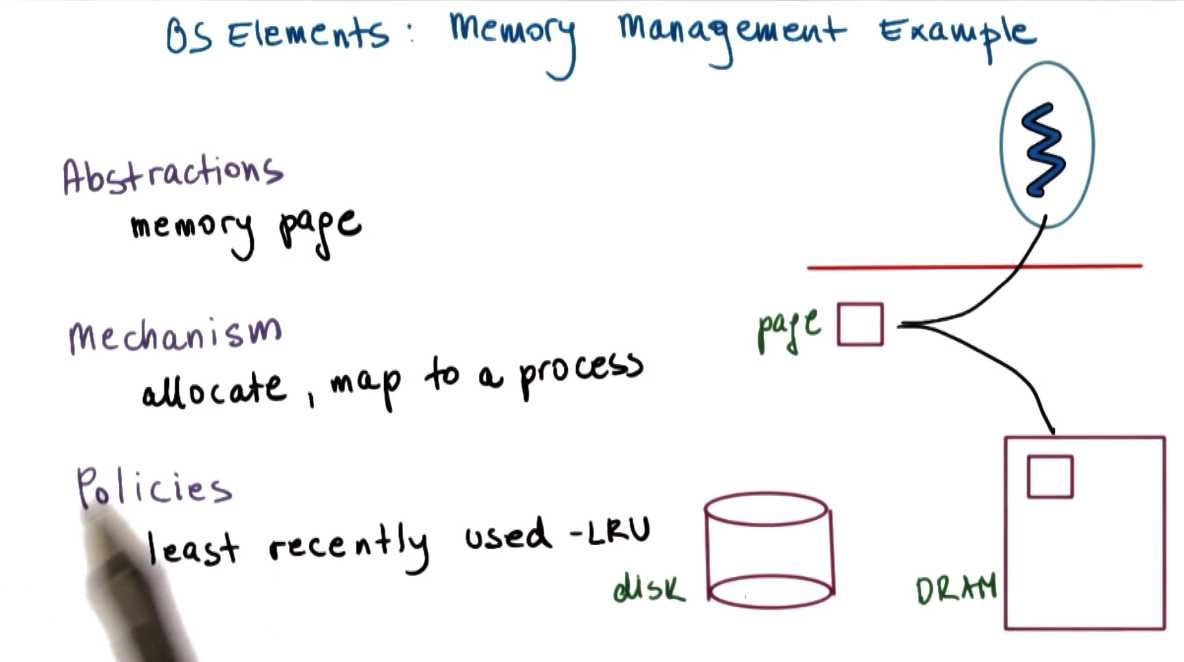 OS Elements: Memory Management Example
Abstractions
memory page
Mechanism
allocate, map to a process
Policies
least recently used -LRU
page
disk
DRAM